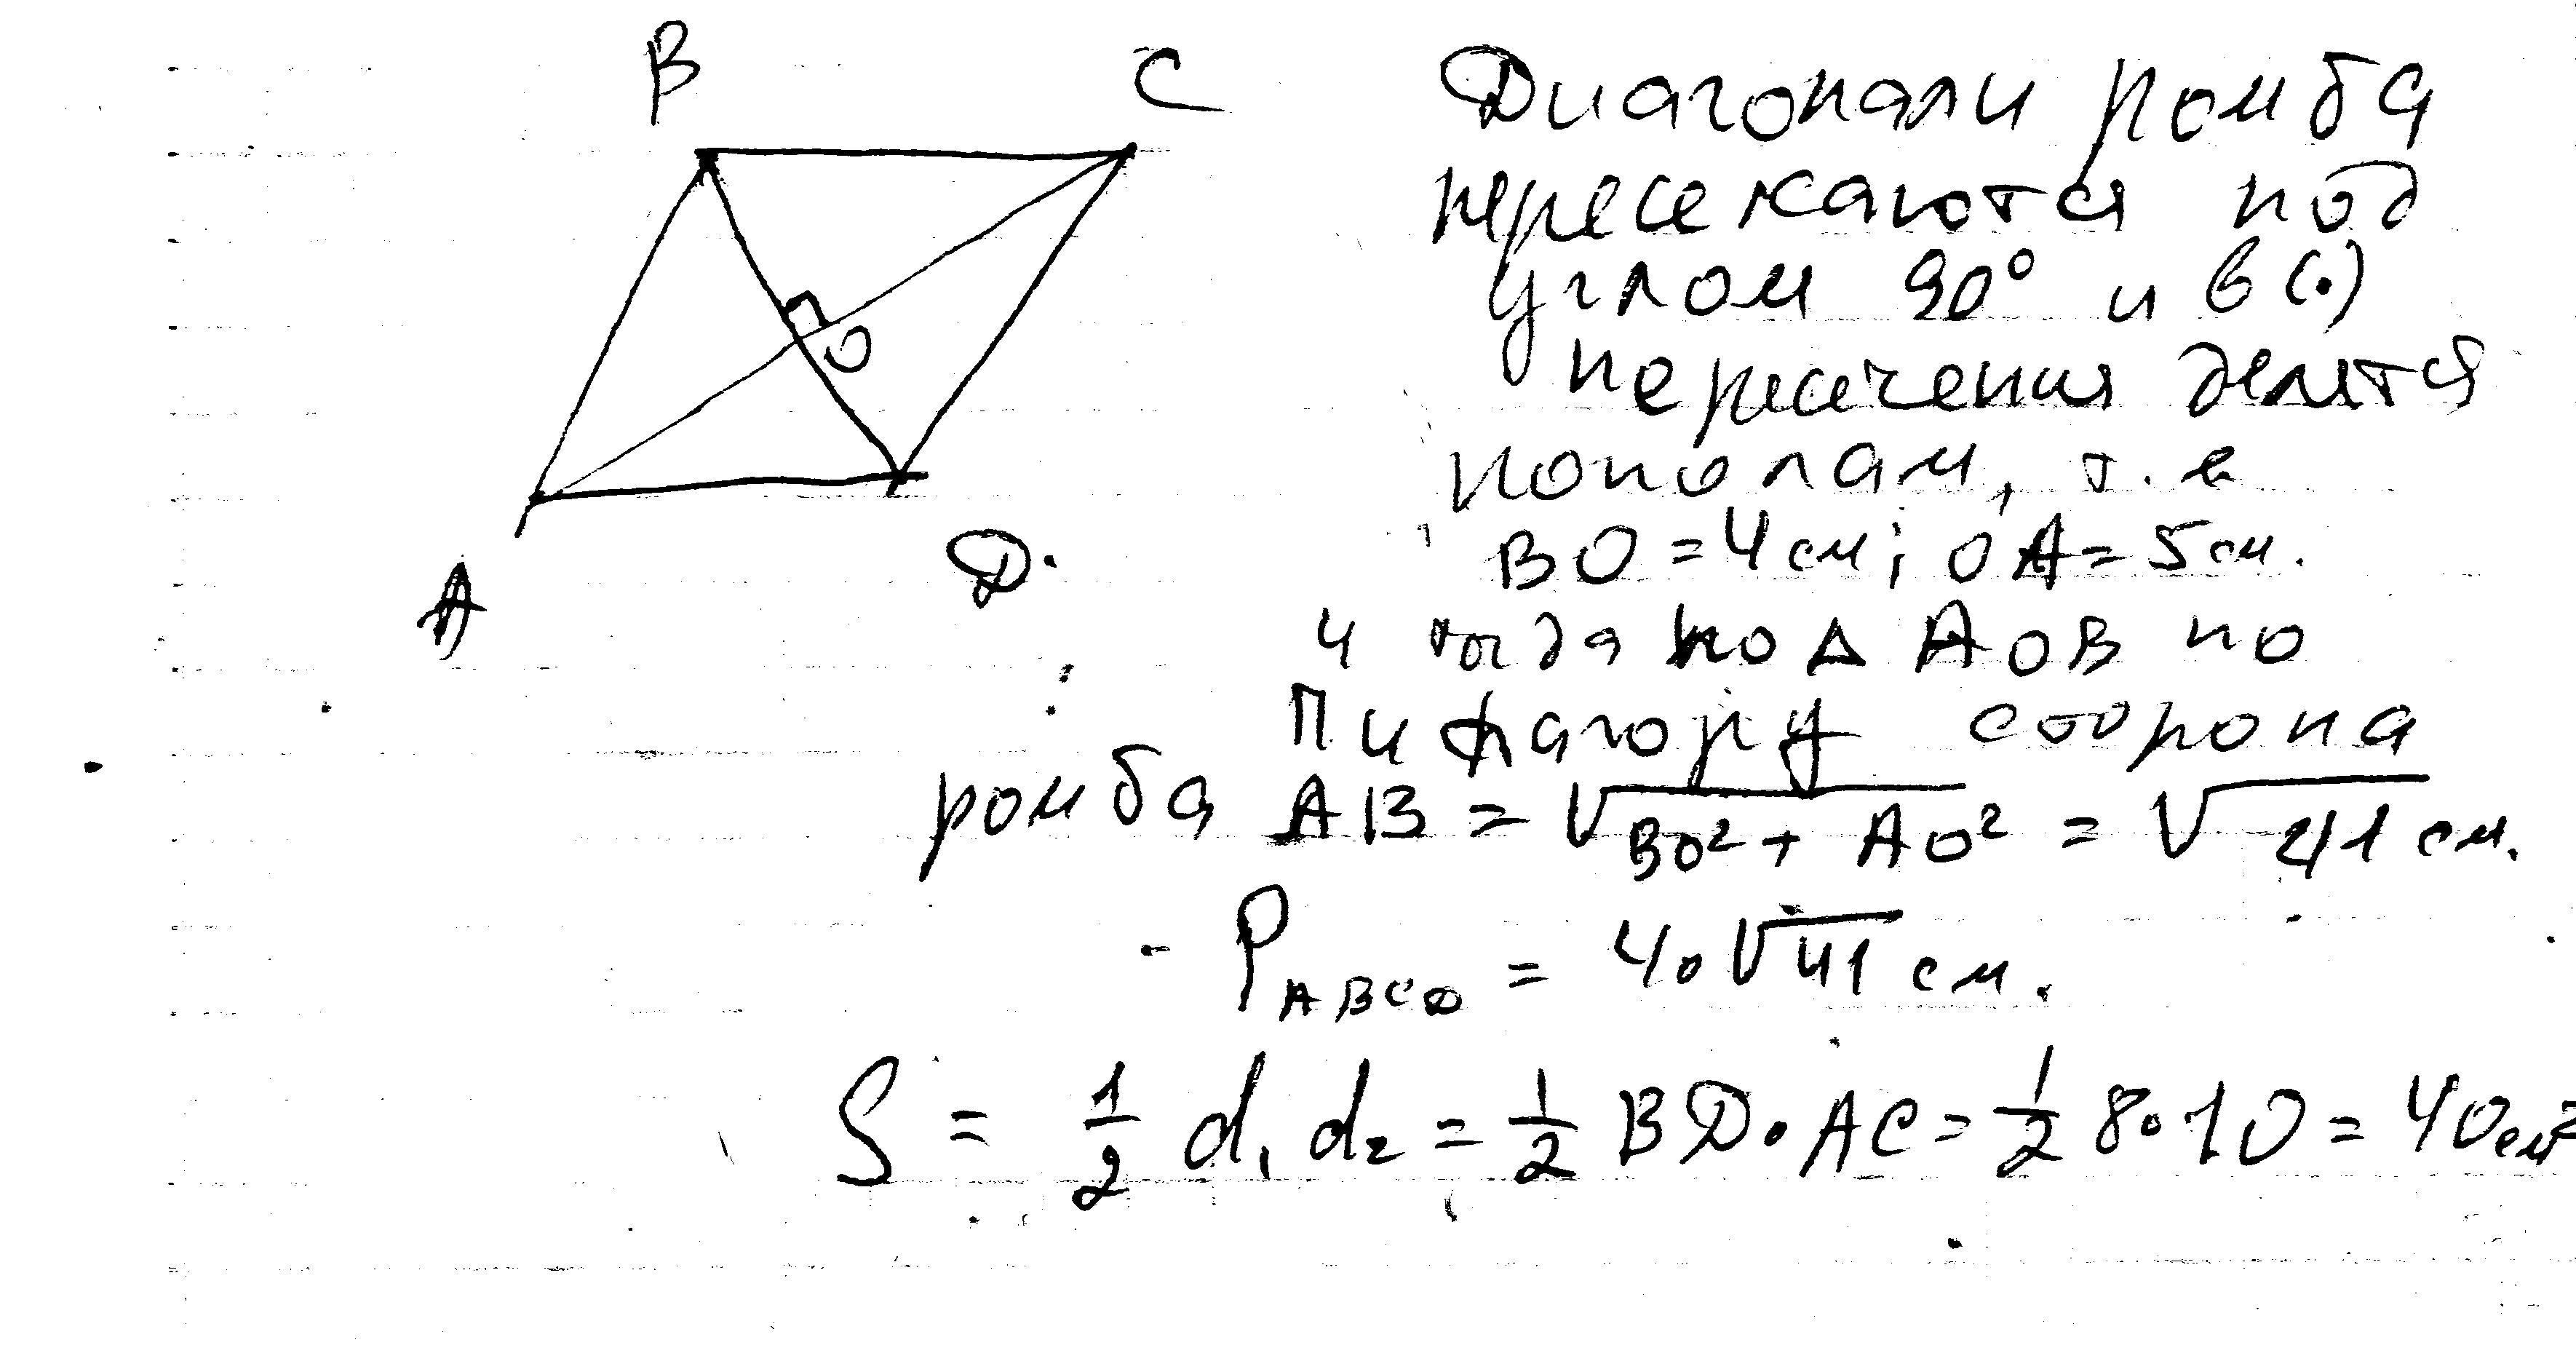 B C
Диагонали ромба
пересекаются под
углом 90° и в (·)
O
пересечения делятся
пополам, т. е
BO = 4 см; OA = 5 см.
A D.
и тогда по Δ AOB по
Пифагору сторона
ромба AB = √BO² + AO² = √41 см.
P ABCD = 4·√41 см.
S = 1/2 d₁ d₂ = 1/2 BD·AC = 1/2 8·10 = 40 см²